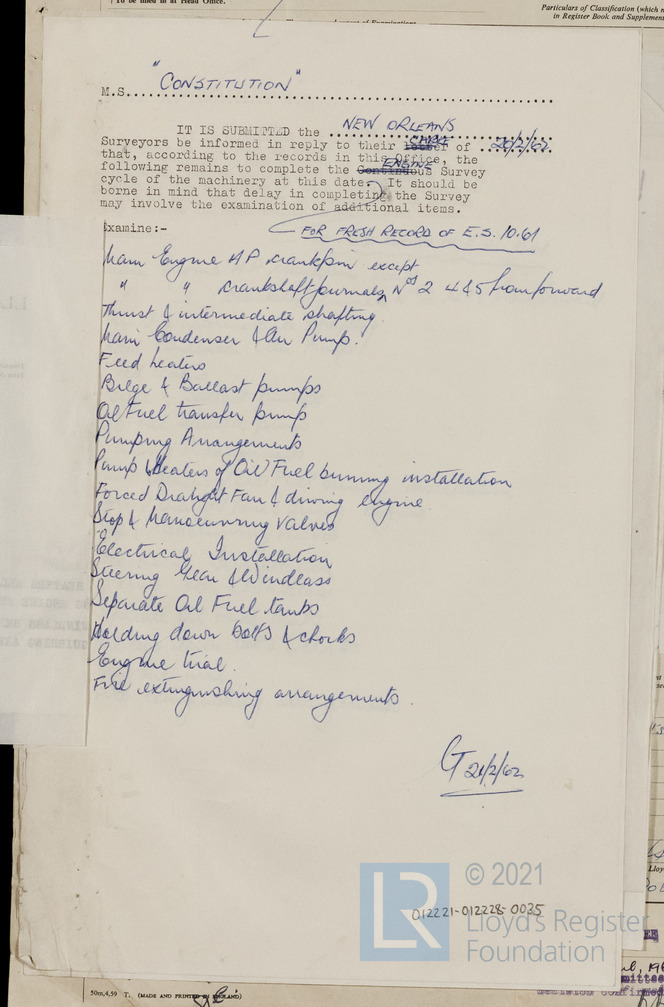 To be filled in at Head Office.
Particulars of Classification (which
in Register Book and Supplemen
"CONSTITUTION"
M.S.
NEW ORLEANS
IT IS SUBMITTED the
CABLE
Surveyors be informed in reply to their letter of 20/2/62.
that, according to the records in this Office, the
ENGINE
following remains to complete the Continuous Survey
cycle of the machinery at this date. It should be
borne in mind that delay in completing the Survey
may involve the examination of additional items.
Examine:-
FOR FRESH RECORD OF E.S. 10.61
Main Engine HP crankpin except
" " crankshaft journals, Nos 2 4 & 5 from forward
Thrust & intermediate shafting
Main Condenser & Air Pump.
Feed heaters
Bilge & Ballast pumps
Oil Fuel transfer pump
Pumping Arrangements
Pump & Heaters of Oil Fuel burning installation
Forced Draught Fan & driving engine
Stop & Manoeuvring Valves
Electrical Installation
Steering Gear & Windlass
Separate Oil Fuel tanks
Holding down bolts & chocks
Engine trial.
Fire extinguishing arrangements.
GT 21/2/62
© 2021
LR
012221-012228-0035
Lloyd's Register
Foundation
50m,4,59 T. (MADE AND PRINTED IN ENGLAND)